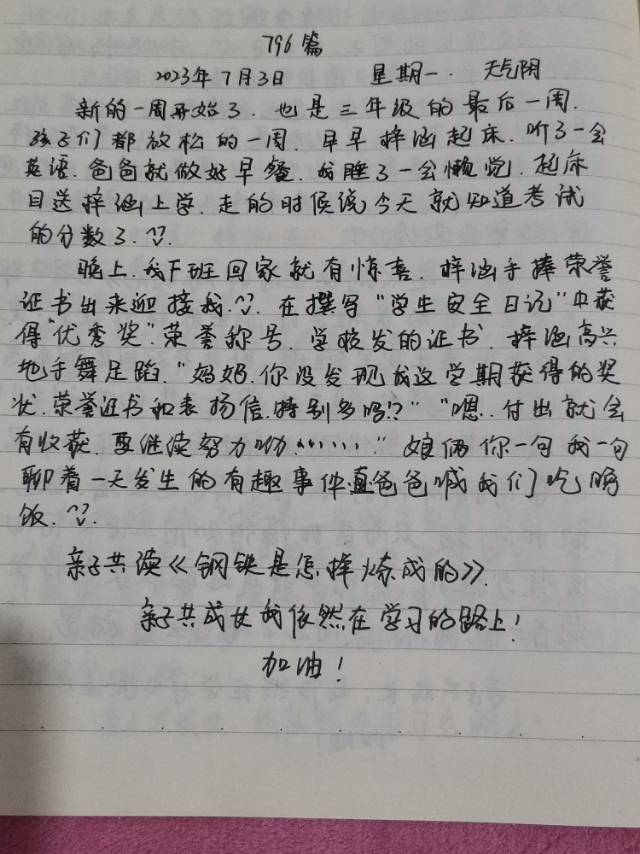 796篇
2023年7月3日 星期一. 天气阴
新的一周开始了. 也是三年级的最后一周.
孩子们都放松的一周. 早早梓涵起床. 听了一会
英语. 爸爸就做好早餐. 我睡了一会懒觉. 起床
目送梓涵上学. 走的时候说今天就知道考试
的分数了.
晚上. 我下班回家就有惊喜. 梓涵手捧荣誉
证书出来迎接我. 在撰写"学生安全日记"中获
得"优秀奖". 荣誉称号. 学校发的证书. 梓涵高兴
地手舞足蹈. "妈妈. 你没发现我这学期获得的奖
状. 荣誉证书和表扬信. 特别多吗!?" "嗯.. 付出就会
有收获. 要继续努力呦……" 娘俩你一句我一句
聊着一天发生的有趣事件直爸爸喊我们吃晚
饭.
亲子共读《钢铁是怎样炼成的》.
亲子共成长我依然在学习的路上!
加油!